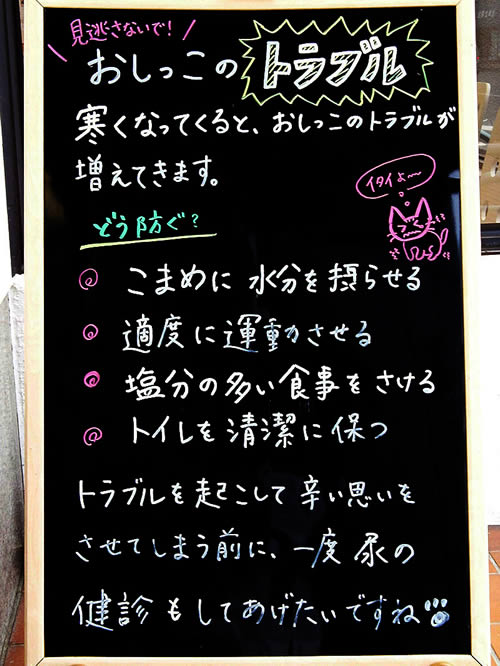 見逃さないで!
おしっこのトラブル
寒くなってくると、おしっこのトラブルが
増えてきます。
イタイよ〜
どう防ぐ?
こまめに水分を摂らせる
適度に運動させる
塩分の多い食事をさける
トイレを清潔に保つ
トラブルを起こして辛い思いを
させてしまう前に、一度尿の
健診もしてあげたいですね